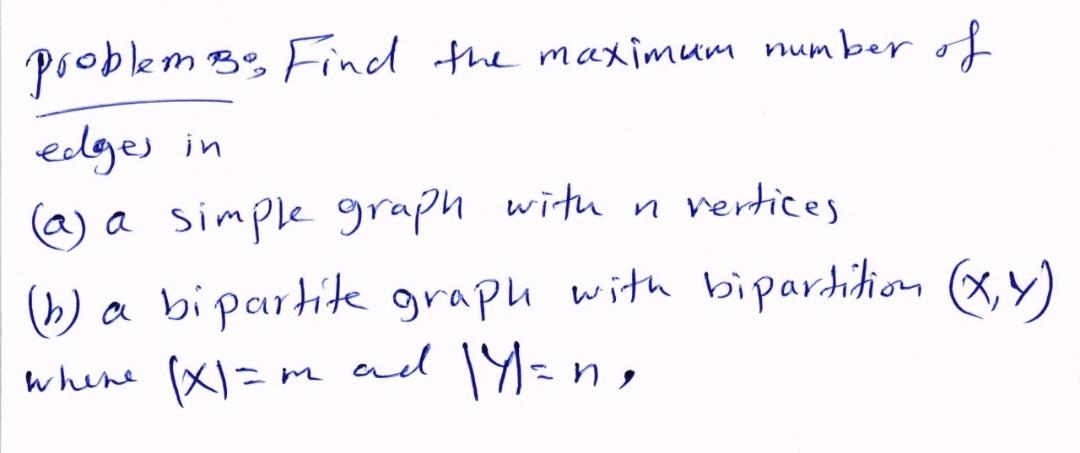 problem 3: Find the maximum number of
edges in
(a) a simple graph with n vertices
(b) a bipartite graph with bipartition (X,Y)
where |X|=m and |Y|=n,